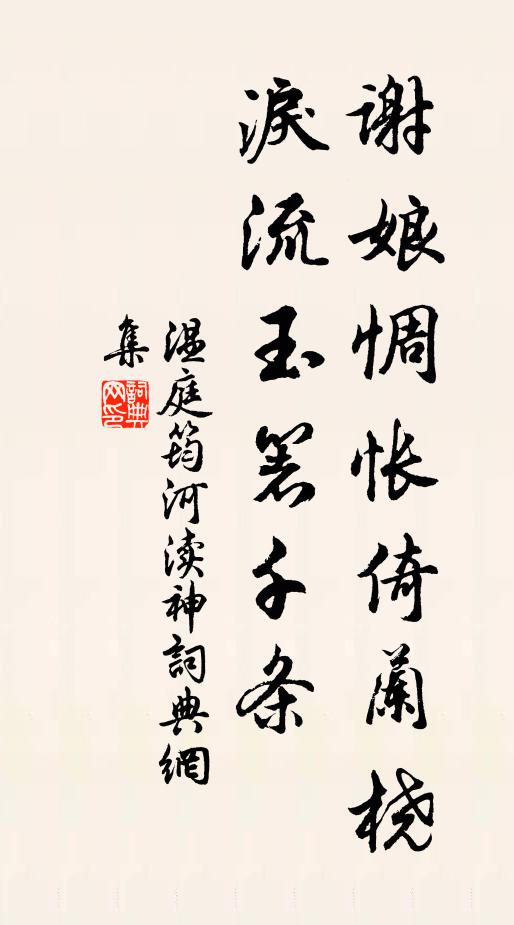 谢娘惆怅倚兰桡
淚流玉箸千条
温庭筠河渎神詞典網
集
詞典网印